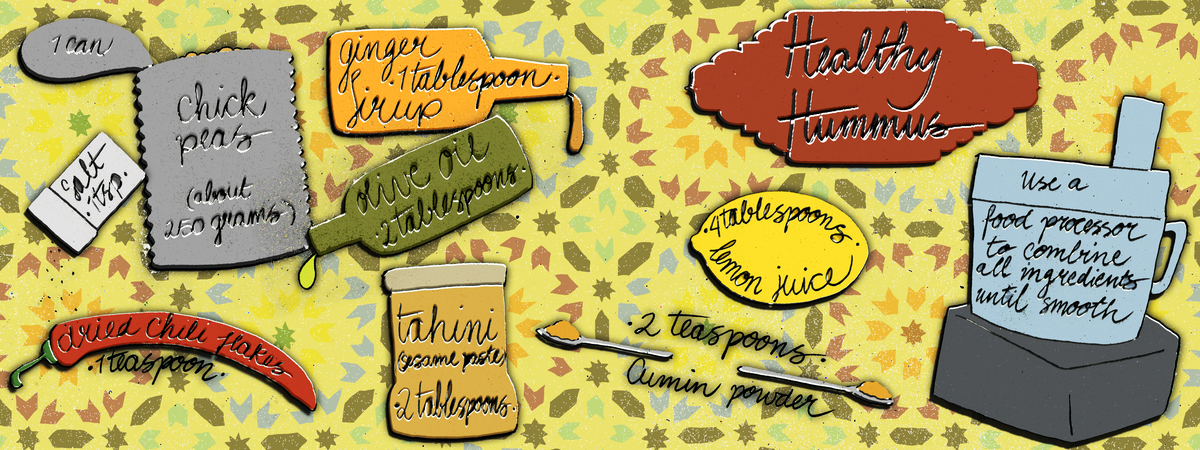 1 can
chick
peas
(about
250 grams)
salt
·1tsp.
ginger
sirup
·1tablespoon·
olive oil
·2tablespoons.
dried chili flakes
·1teaspoon·
tahini
(sesame paste)
·2 tablespoons·
Healthy
Hummus
·4tablespoons.
lemon juice
·2 teaspoons·
Cumin powder
Use a
food processor
to combine
all ingredients
until smooth